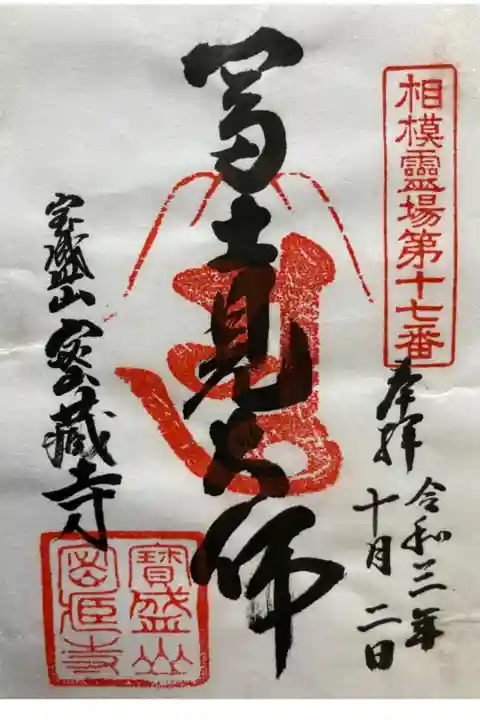 相模靈場第十七番
奉拝
令和三年
十月二日
冨士見大師
宝盛山密蔵寺
寶盛山
密藏寺